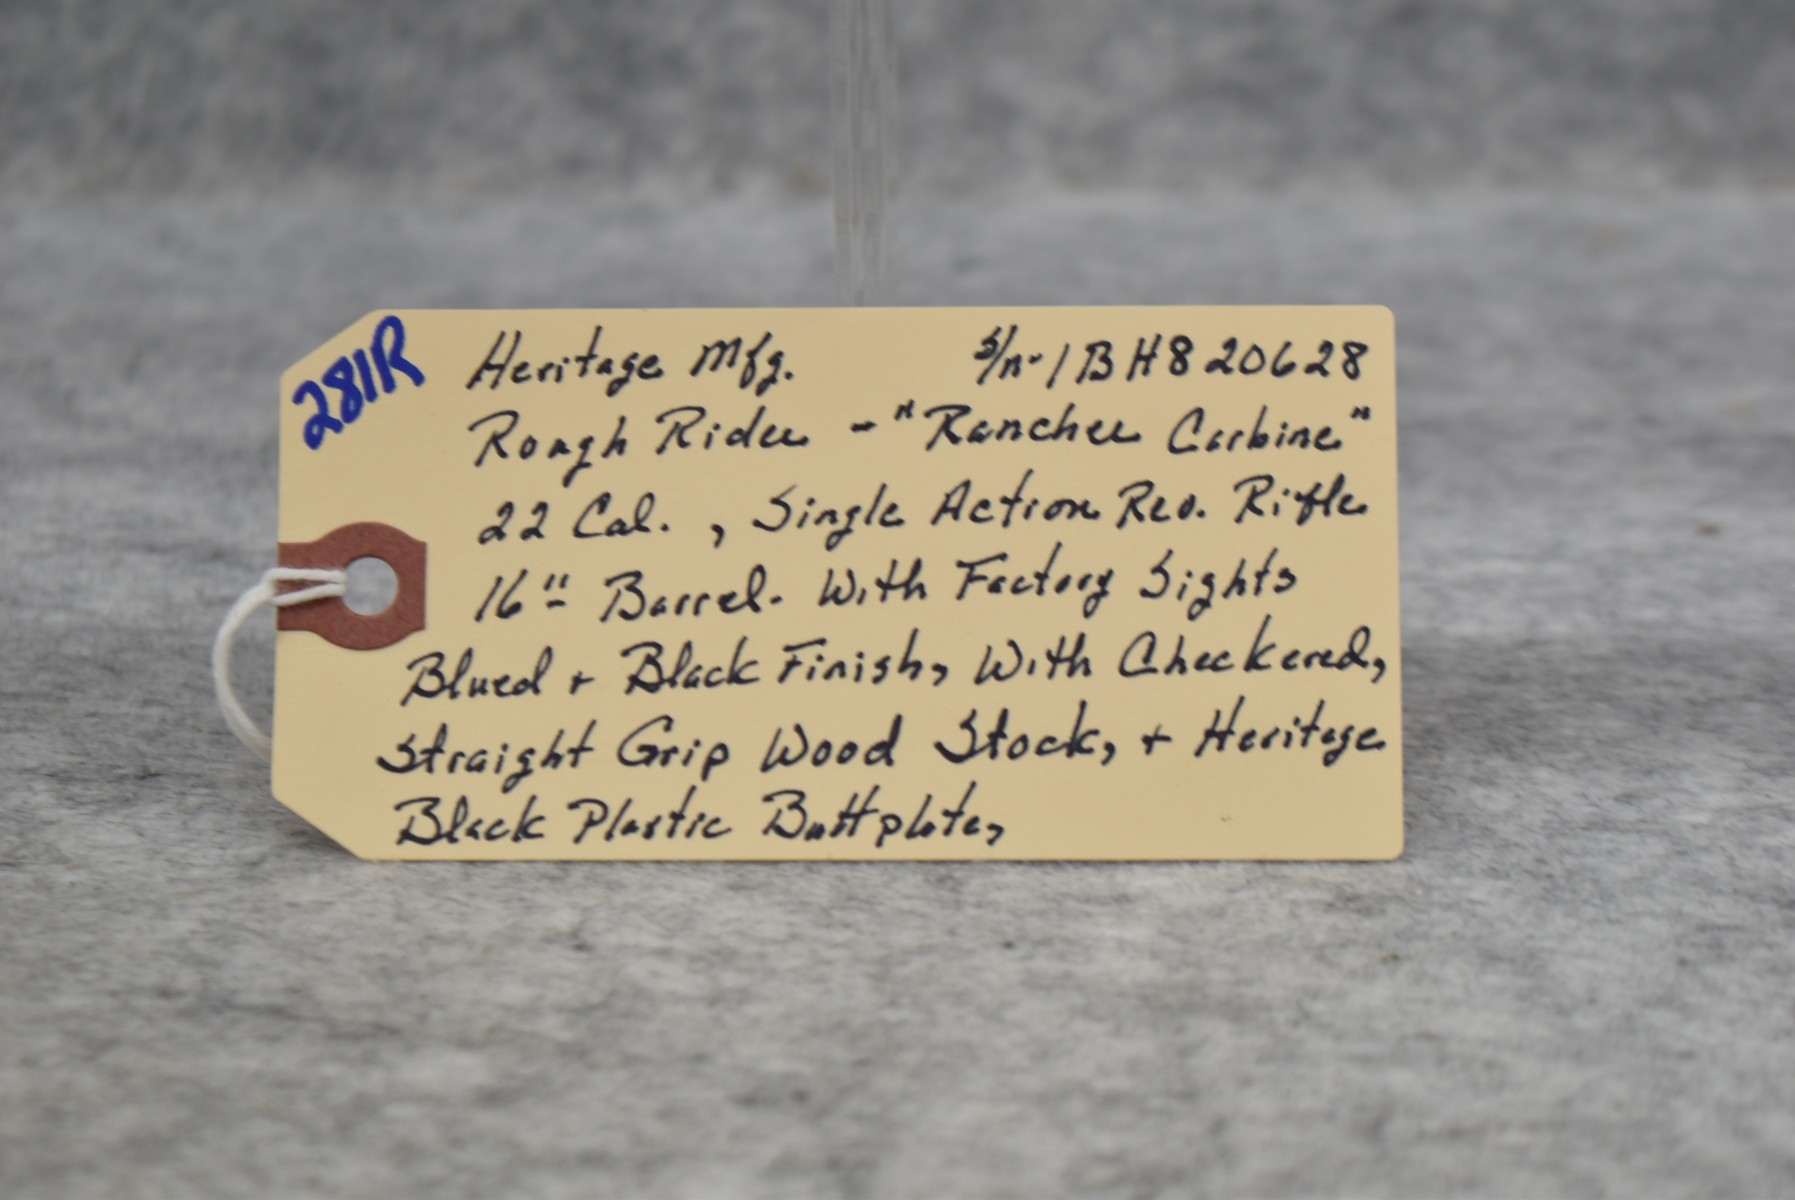 281R
Heritage Mfg. S/n-1BH820628
Rough Rider - "Rancher Carbine"
22 Cal. , Single Action Rev. Rifle
16" Barrel. With Factory Sights
Blued + Black Finish, With Checkered,
Straight Grip Wood Stock, + Heritage
Black Plastic Buttplate,